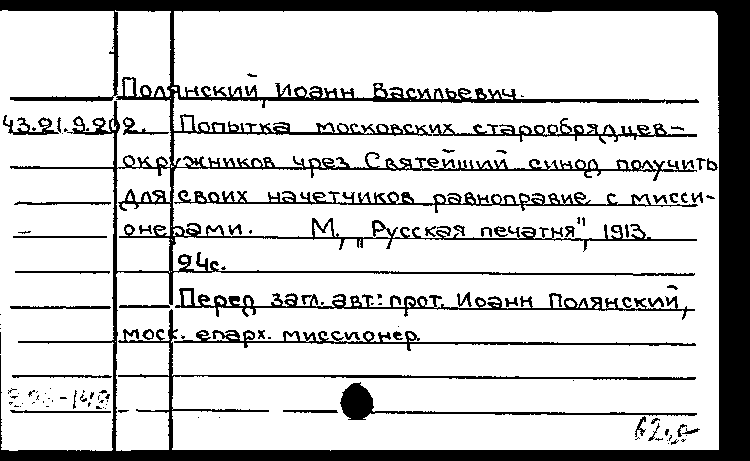 Полянский, Иоанн Васильевич.
43.21.9.202. Попытка московских старообрядцев-
окружников чрез Святейший синод получить
для своих начетчиков равноправие с мисси-
онерами. М., „Русская печатня", 1913.
24с.
Перед загл. авт: прот. Иоанн Полянский,
моск. епарх. миссионер.